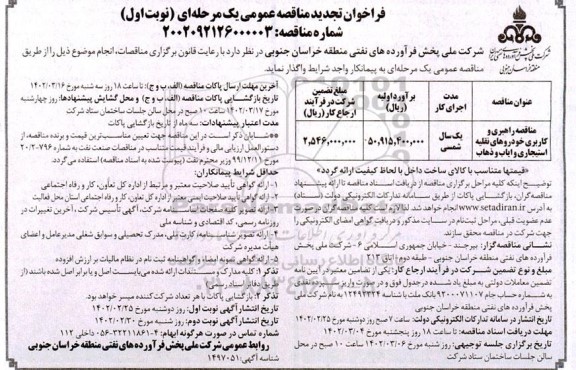 فراخوان تجدید مناقصه عمومی یک مرحله‌ای (نوبت اول)
شماره مناقصه: ۲۰۰۲۰۹۲۱۲۶۰۰۰۰۰۳
شرکت ملی پخش فرآورده های نفتی منطقه خراسان جنوبی در نظر دارد با رعایت قانون برگزاری مناقصات، انجام موضوع ذیل را از طریق
مناقصه عمومی یک مرحله‌ای به پیمانکار واجد شرایط واگذار نماید.
عنوان مناقصه
مدت اجرای کار
برآورد اولیه (ریال)
مبلغ تضمین شرکت در فرآیند ارجاع کار (ریال)
مناقصه راهبری و کاربری خودروهای نقلیه استیجاری و ایاب و ذهاب
یک سال شمسی
۵۰,۹۱۵,۴۰۰,۰۰۰
۲,۵۴۶,۰۰۰,۰۰۰
«قیمتها متناسب با کالای ساخت داخل با لحاظ کیفیت ارائه گردد»
توضیح اینکه کلیه مراحل برگزاری مناقصه از دریافت اسناد مناقصه تا ارائه پیشنهاد
مناقصه گران، بازگشایی پاکات از طریق سامانه تدارکات الکترونیکی دولت (ستاد)
به آدرس www.setadiran.ir انجام خواهد شد. لازم است مناقصه گران در صورت
عدم عضویت قبلی، مراحل ثبت نام در سایت مذکور و دریافت گواهی امضای الکترونیکی را
جهت شرکت در مناقصه محقق سازند.
نشانی مناقصه گزار: بیرجند - خیابان جمهوری اسلامی ۶ - شرکت ملی پخش
فرآورده های نفتی منطقه خراسان جنوبی - طبقه دوم - اتاق ۵۲
مبلغ و نوع تضمین شرکت در فرآیند ارجاع کار: یکی از تضامین معتبر در آیین نامه
تضمین معاملات دولتی به مبلغ یاد شده در جدول فوق و در صورت واریز سپرده نقدی
پخش فرآورده های نفتی منطقه خراسان جنوبی
تاریخ انتشار در سامانه تدارکات الکترونیکی دولت: ساعت ۷ صبح روز دوشنبه مورخ ۱۴۰۲/۰۲/۲۵
مهلت دریافت اسناد مناقصه: تا ساعت ۱۸ روز پنجشنبه مورخ ۱۴۰۲/۰۳/۰۴
تاریخ برگزاری جلسه توجیهی: مورخ ۱۴۰۲/۰۳/۰۶ ساعت ۱۰ صبح در محل
سالن جلسات ساختمان ستاد شرکت
آخرین مهلت ارسال پاکات مناقصه (الف، ب و ج): تا ساعت ۱۸ روز سه شنبه مورخ ۱۴۰۲/۰۳/۱۶
تاریخ بازگشایی پاکات مناقصه (الف، ب و ج) و محل گشایش پیشنهادها: روز چهارشنبه
مورخ ۱۴۰۲/۰۳/۱۷ ساعت ۱۰ صبح در محل سالن جلسات ساختمان ستاد شرکت
مدت اعتبار پیشنهادات: سه ماه از تاریخ بازگشایی پاکات
**شایان ذکر است در این مناقصه جهت تعیین مناسب‌ترین قیمت و برنده مناقصه، از
دستورالعمل ارزیابی مالی و فرآیند قیمت متناسب در مناقصات صنعت نفت به شماره ۲۰/۲-۷۹۶
مورخ ۹۹/۱۲/۱۱ وزیر محترم نفت (پیوست شده به اسناد مناقصه) استفاده می گردد.
حداقل شرایط پیمانکاران:
۱- ارائه گواهی تأیید صلاحیت معتبر و مرتبط از اداره کل تعاون، کار و رفاه اجتماعی
۴- ارائه تصویر شناسنامه، کارت ملی، مدرک تحصیلی و سوابق شغلی مدیرعامل و اعضای
هیأت مدیره شرکت
۵- ارائه گواهی نمونه امضاء و گواهینامه ثبت نام در نظام مالیات بر ارزش افزوده
تذکر ۲: بازگشایی پاکات با هر تعداد شرکت کننده میسر خواهد بود.
تاریخ انتشار آگهی نوبت اول: روز دوشنبه مورخ ۱۴۰۲/۰۲/۲۵
تاریخ انتشار آگهی نوبت دوم: روز شنبه مورخ ۱۴۰۲/۰۲/۳۰
شماره تماس در صورت هرگونه ابهام: ۴-۳۲۲۱۱۸۶۱-۰۵۶ داخلی ۱۱۲
روابط عمومی شرکت ملی پخش فرآورده های نفتی منطقه خراسان جنوبی
شناسه آگهی: ۱۴۹۷۰۵۱